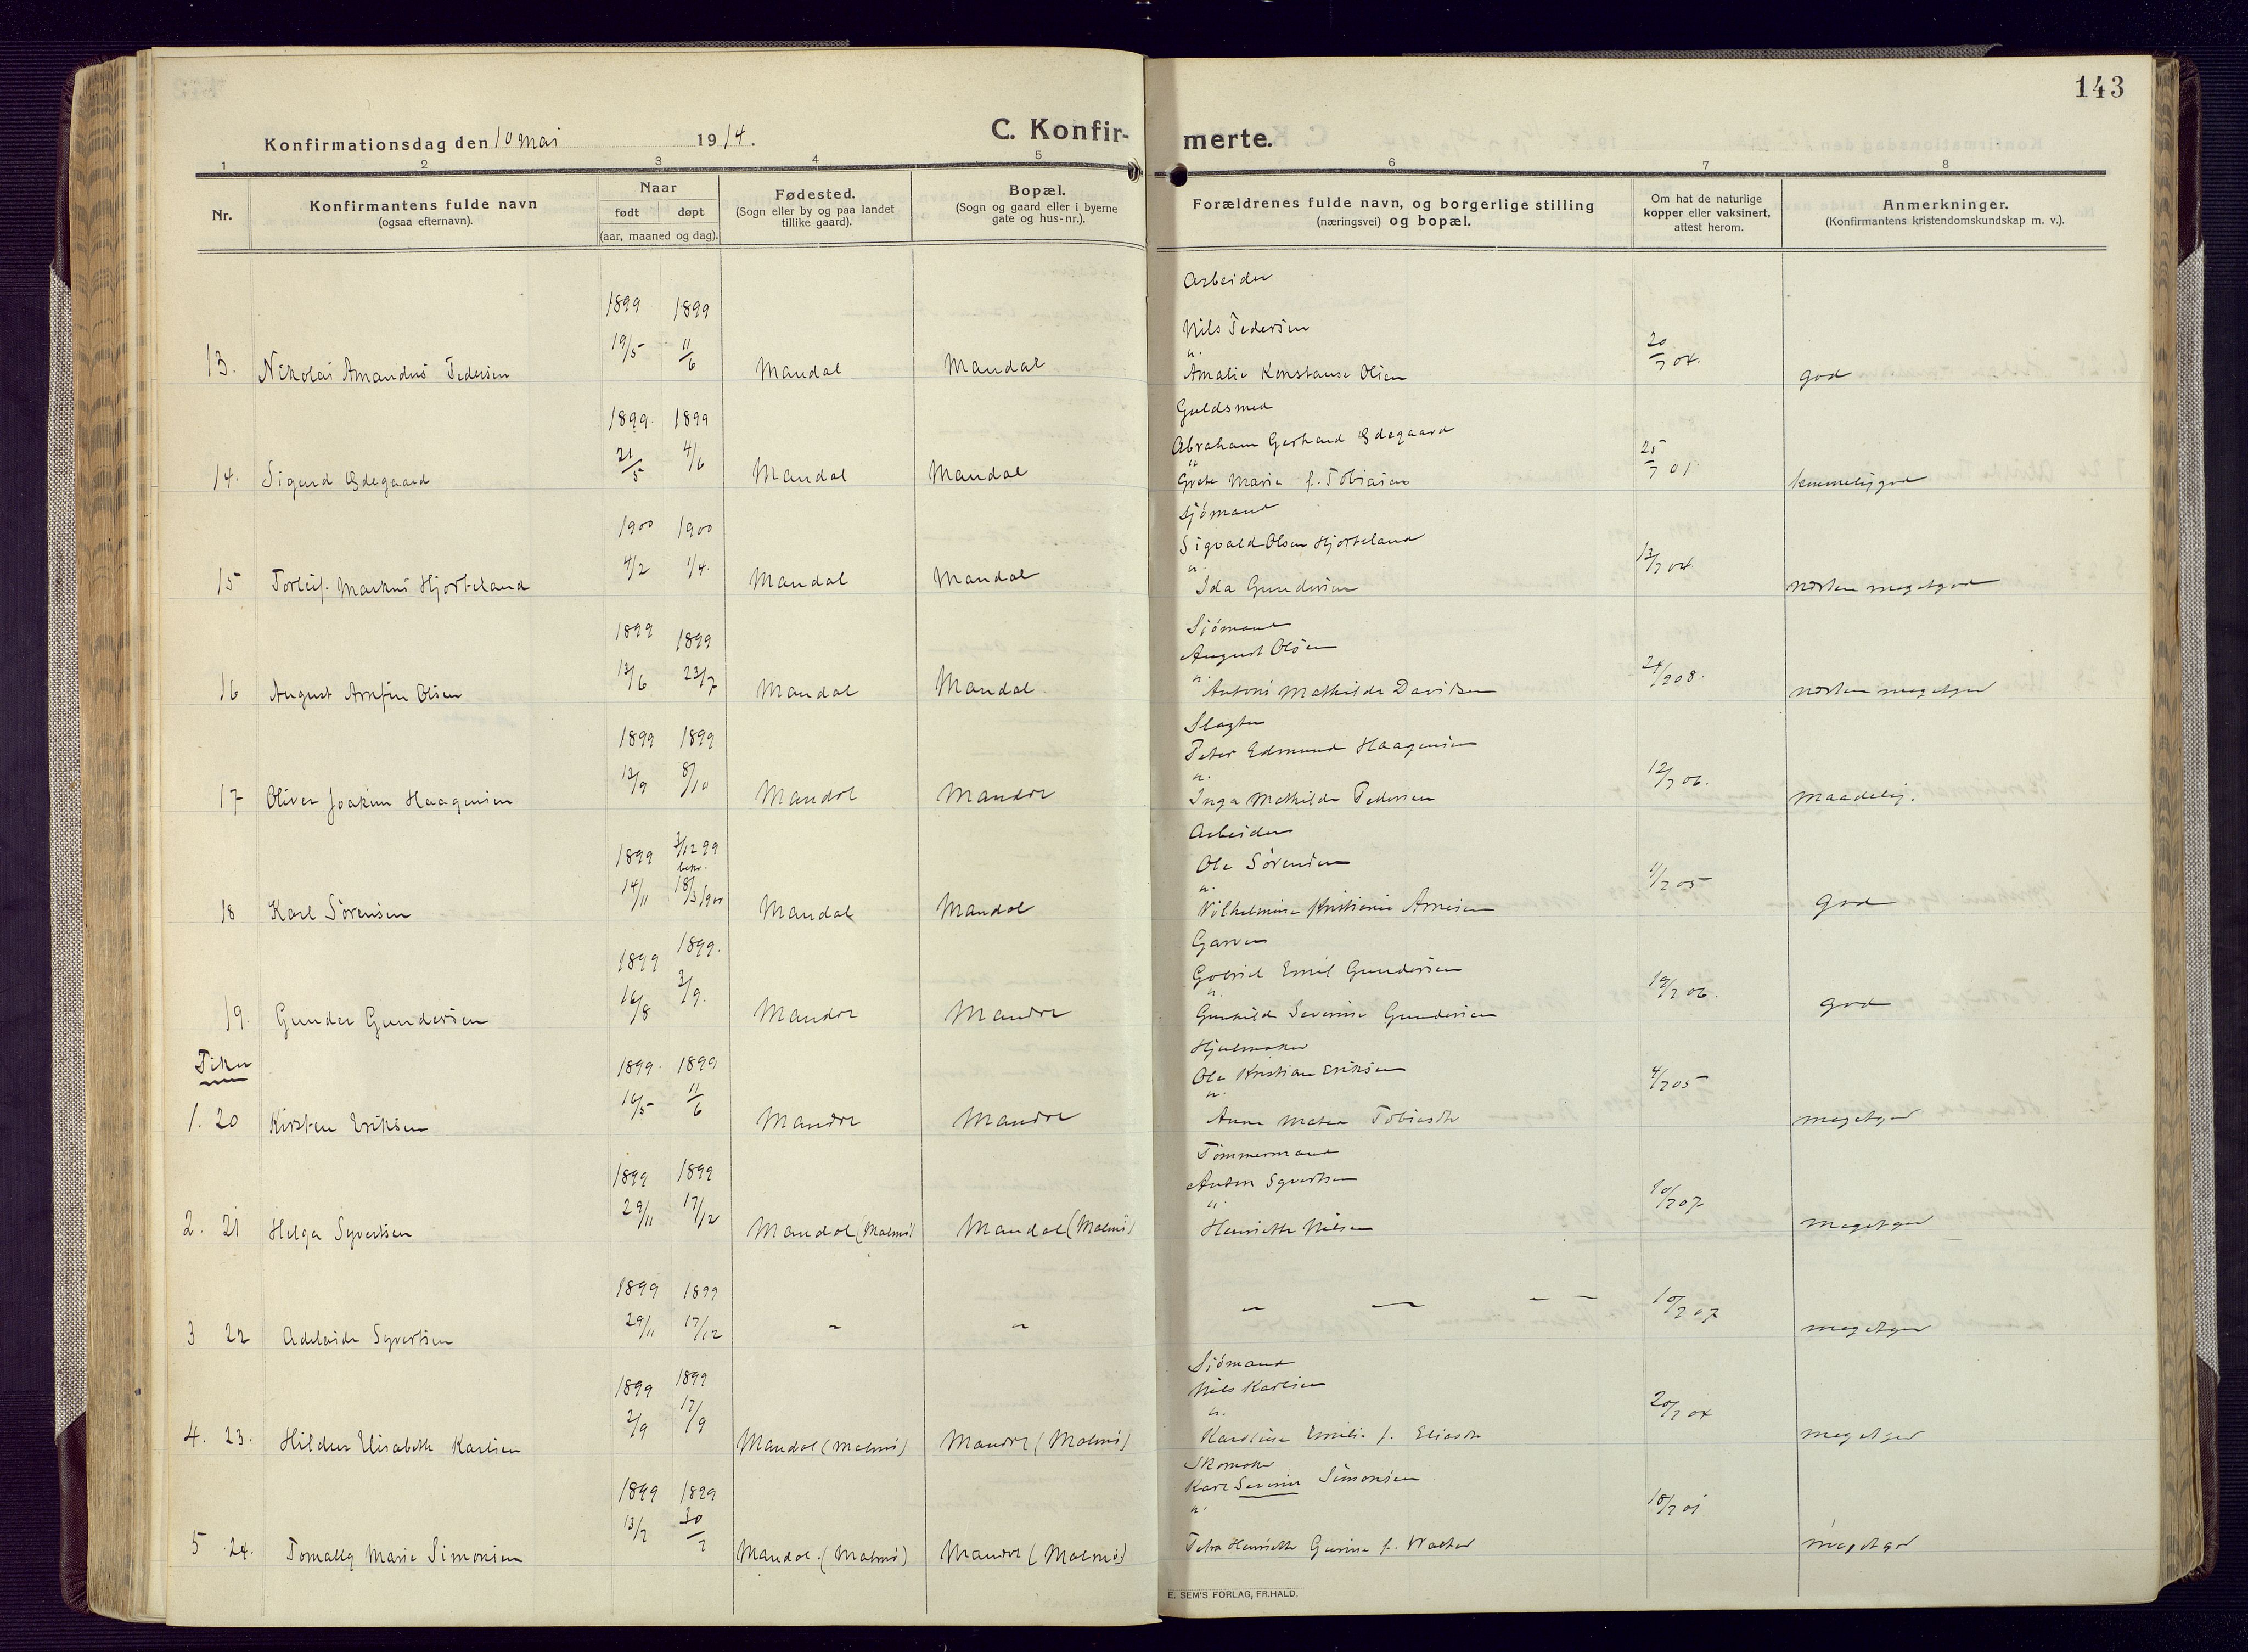 143
C. Konfirmerte.
Konfirmationsdag den 10 mai 1914.
1 2 3 4 5 6 7 8
Nr.
Konfirmantens fulde navn
(ogsaa efternavn).
Naar
født døpt
(aar, maaned og dag).
Fødested.
(Sogn eller by og paa landet
tillike gaard).
Bopæl.
(Sogn og gaard eller i byerne
gate og hus-nr.).
Forældrenes fulde navn, og borgerlige stilling
(næringsvei) og bopæl.
Om hat de naturlige
kopper eller vaksinert,
attest herom.
Anmerkninger.
(Konfirmantens kristendomskundskap m. v.).
Arbeider
1899 1899
Nils Pedersen
13. Nikolai Amandus Pedersen 19/5 11/6 Mandal Mandal
u.
Amalie Konstanse Olsen 20/7 04. god
Guldsmed
1899. 1899
Abraham Gerhard Ødegaard
14. Sigurd Ødegaard 21/5 4/6 Mandal Mandal
u
Grete Marie f. Tobiasen 25/7 01. temmelig god
Sjömand
1900 1900
Sigvald Olsen Hjorteland
15 Torleif Markus Hjorteland 4/2 1/4. Mandal Mandal
u.
Ida Gundersen 13/7 04. næsten megetgod
Sjömand
1899 1899
August Olsen
16 August Arnfin Olsen 13/6 23/7 Mandal Mandal
u.
Antoni Mathilde Davidsen 24/9 08. næsten megetgod
Slagter
1899 1899
Peter Edmund Haagensen
17 Oliver Joakim Haagensen 13/9 8/10 Mandal Mandal
u.
Inga Mathilde Pedersen 12/7 06. maadelig.
Arbeider
1899 3/12 99
bekr.
Ole Sörensen
18 Karl Sörensen 14/11 18/3 1900 Mandal Mandal
u.
Vilhelmine Kristiane Arnesen 1/7 05 god
Garver
1899 1899.
Gabriel Emil Gundersen
19. Gunder Gundersen 16/8 3/9. Mandal Mandal
u.
Gunhild Severine Gundersen 19/7 06. god
Piker
Hjulmaker
1899. 1899
Ole Kristian Eriksen
1. 20 Kirsten Eriksen 16/5 11/6 Mandal Mandal
u.
Anne Metea Tobiasdtr 4/7 05 megetgod
Tömmermand
1899 1899
Anton Syvertsen
2. 21 Helga Syvertsen 29/11 17/12 Mandal (Malmö) Mandal (Malmö)
u.
Henriette Nilsen 10/7 07 megetgod
1899 1899
3 22 Adelaide Syvertsen 29/11 17/12 – – – – – – 10/7 07 megetgod
Sjömand
1899 1899
Nils Karlsen
4. 23. Hildur Elisabeth Karlsen 2/9 17/9 Mandal (Malmö) Mandal (Malmö)
u.
Karoline Emilie f. Eliasdtr 20/7 04 megetgod
Skomaker
Karl Severin Simonsen
1899 1899
5 24. Tomally Marie Simonsen 13/7 30/7 Mandal. (Malmö) Mandal (Malmö)
u.
Petra Henriette Gurine f. 18/7 01 megetgod
E. SEM'S FORLAG, FR.HALD.